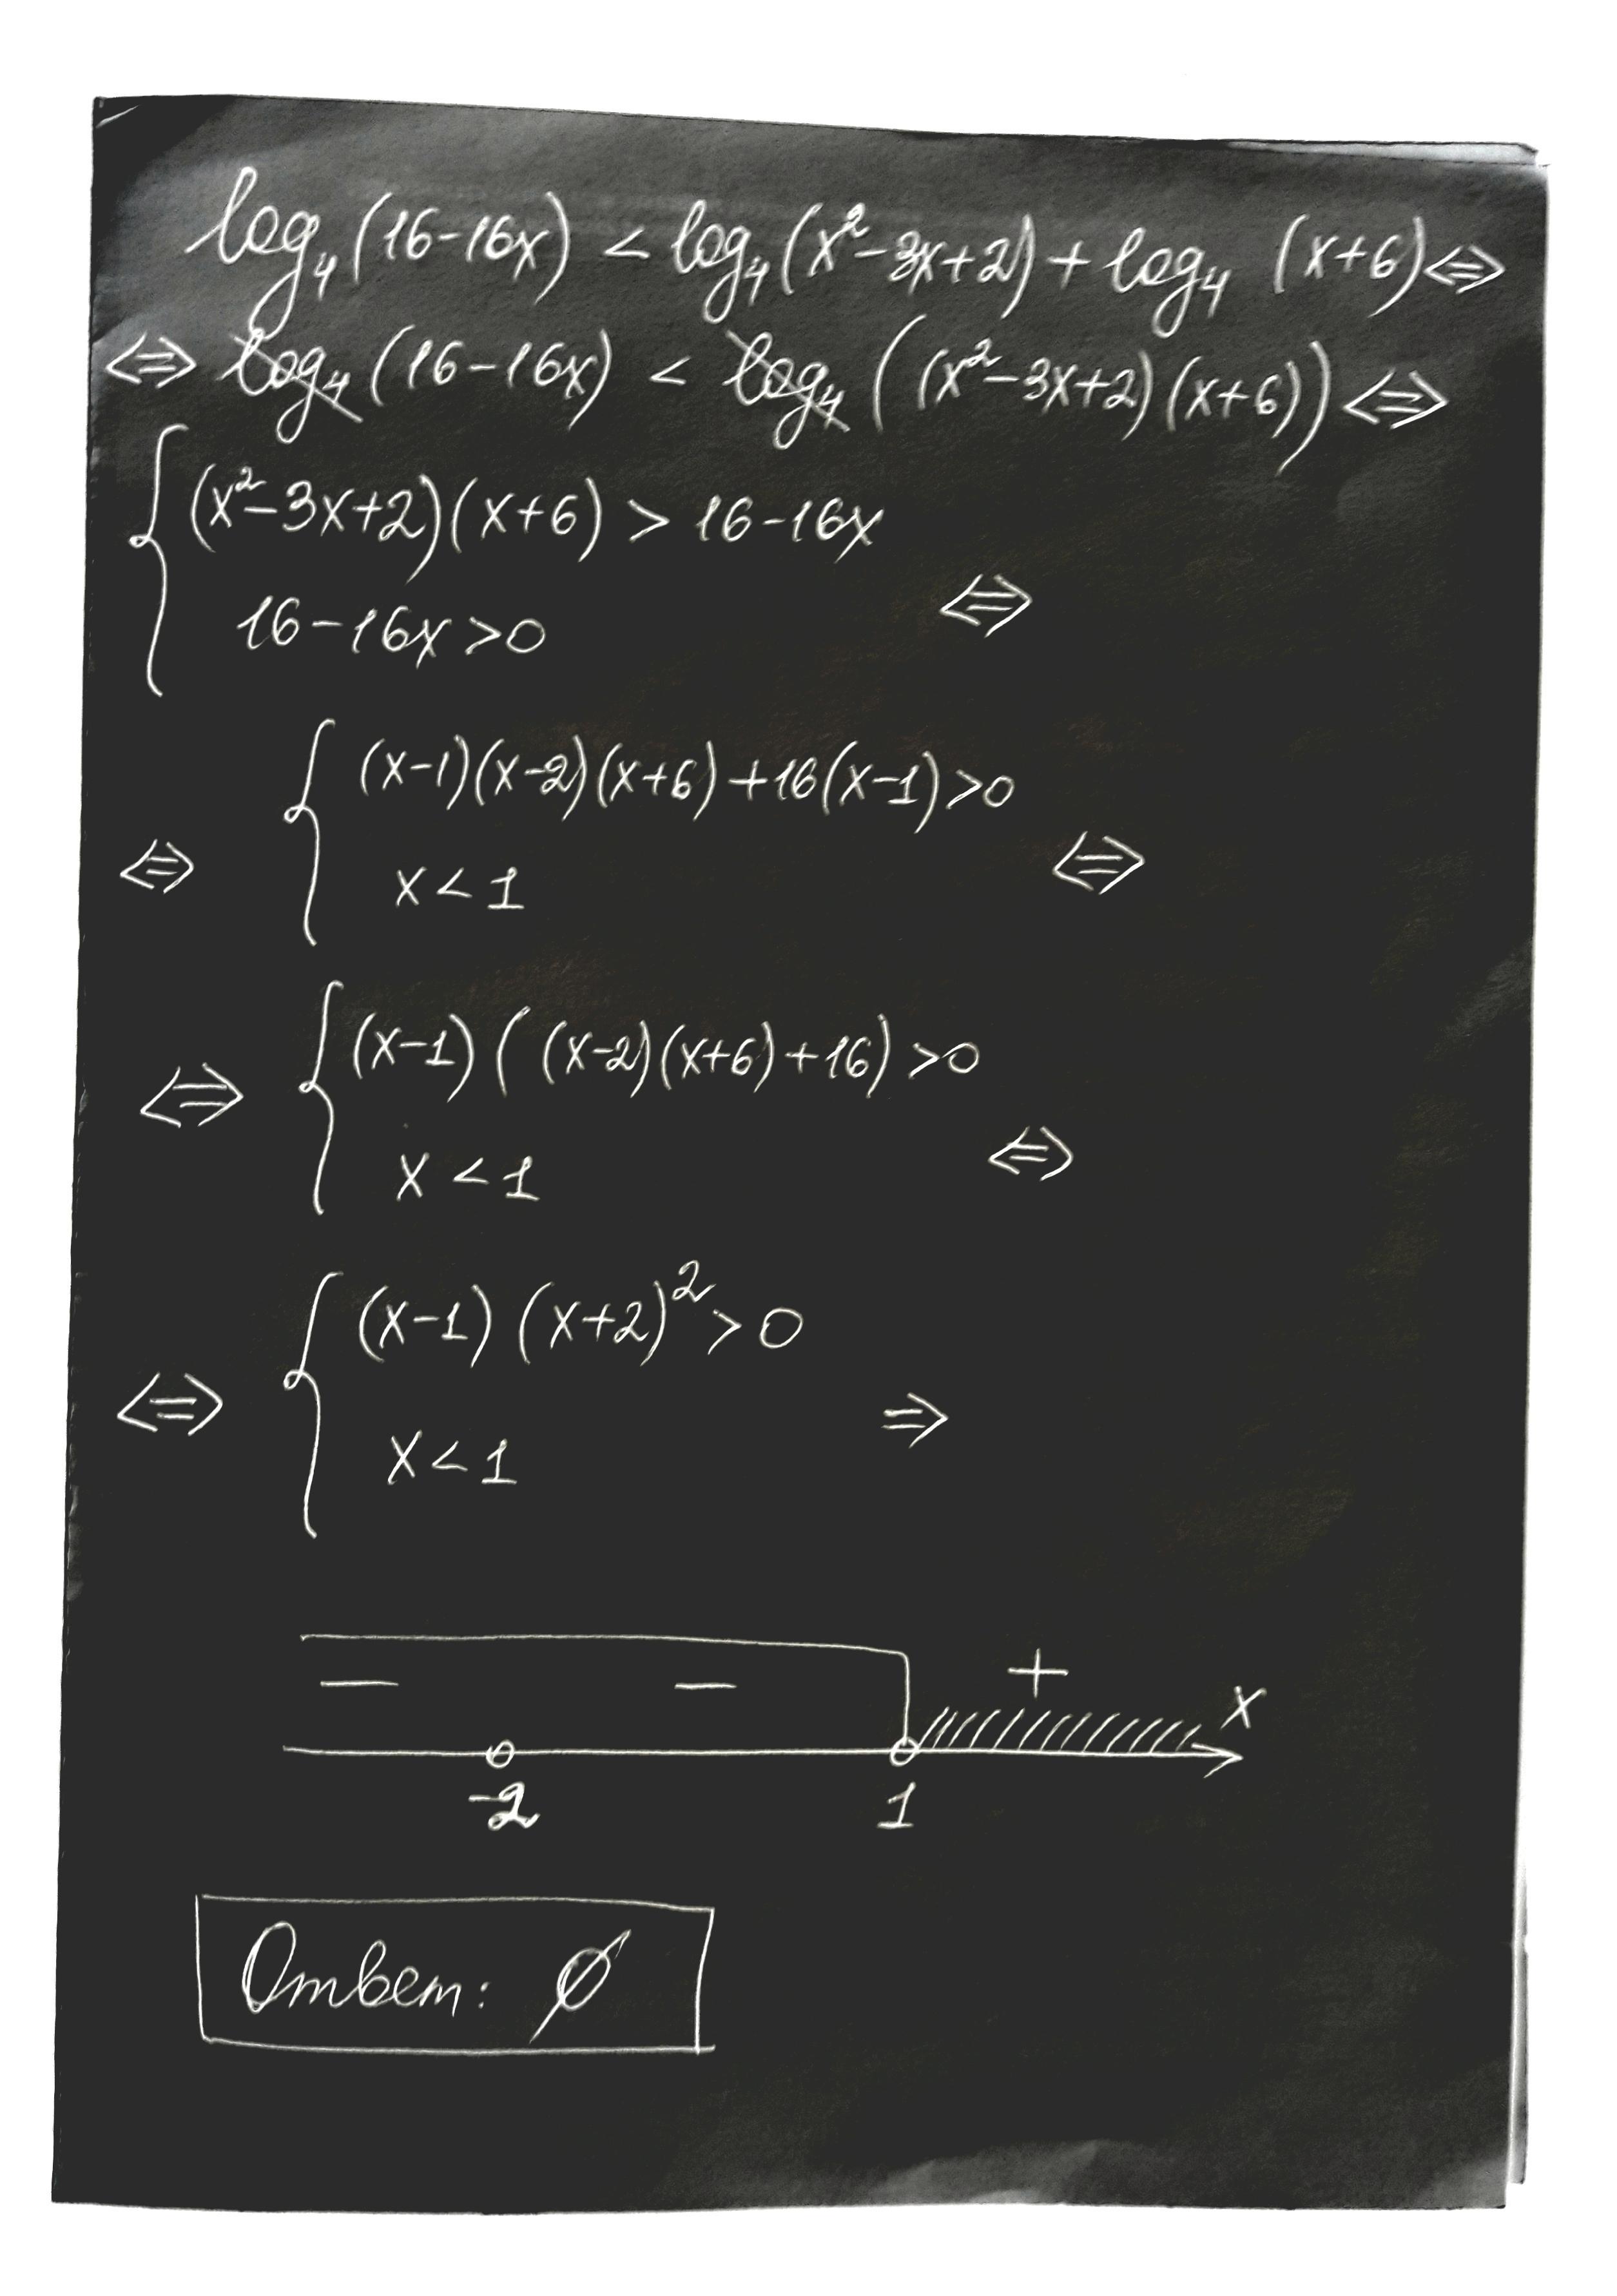 log₄(16-16x) < log₄(x²-3x+2) + log₄ (x+6) ⇔
⇔ log₄(16-16x) < log₄((x²-3x+2)(x+6)) ⇔
{ (x²-3x+2)(x+6) > 16-16x
16-16x>0 ⇔
⇔ { (x-1)(x-2)(x+6)+16(x-1)>0
x<1 ⇔
⇔ { (x-1)((x-2)(x+6)+16)>0
x<1 ⇔
⇔ { (x-1)(x+2)²>0
x<1 ⇒
— — + x
-2 1
Ответ: ∅